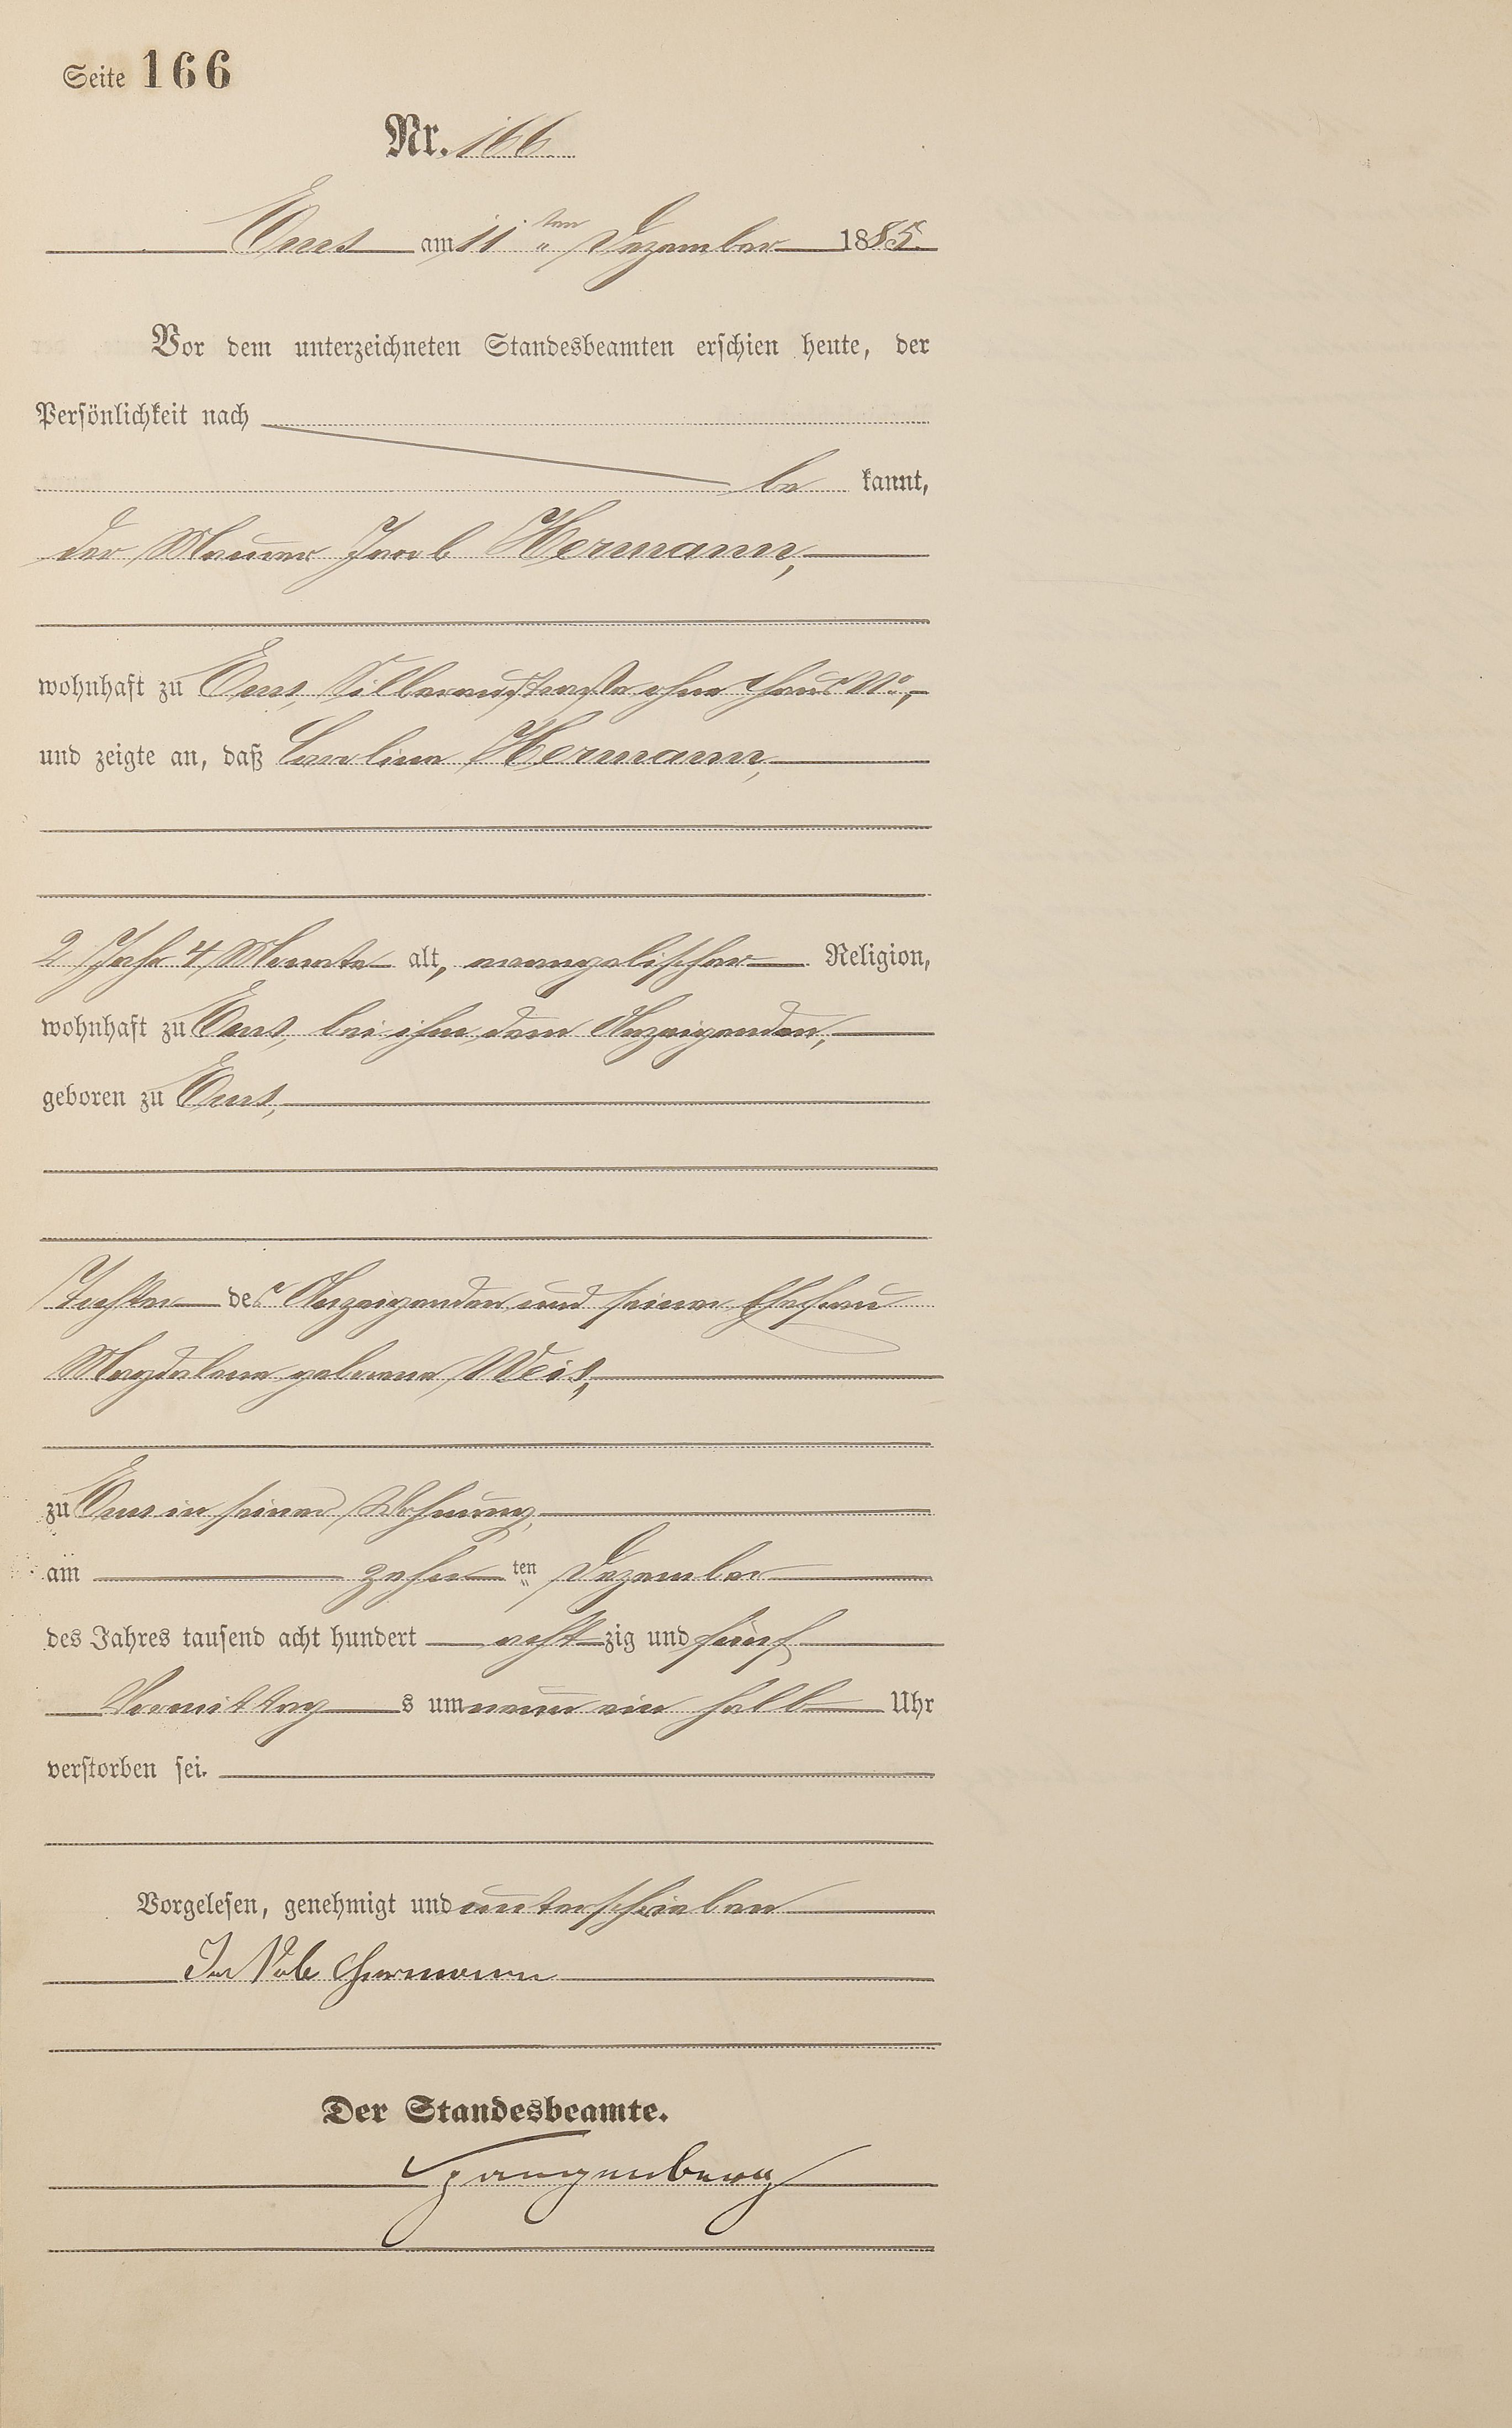 Seite 166
Nr. 166
Ems am 11ten Dezember 1885.
Vor dem unterzeichneten Standesbeamten erschien heute, der
Persönlichkeit nach
be kannt,
der Maurer Jacob Hermann,
wohnhaft zu Ems, Silberaustraße ohne Haus No,
und zeigte an, daß Carolina Hermann,
2 Jahr 4 Monate alt, evangelischer Religion,
wohnhaft zu Ems, bei ihm dem Anzeigenden,
geboren zu Ems,
Tochter des Anzeigenden und seiner Ehefrau
Magdalena geborene Weis,
zu Ems in seiner Wohnung,
am zehn ten Dezember
des Jahres tausend acht hundert acht zig und fünf
Vormittag s um neun ein halb Uhr
verstorben sei.
Vorgelesen, genehmigt und unterschrieben
Jakob Hermann
Der Standesbeamte.
Spangenberg